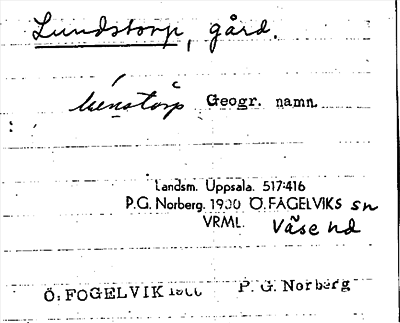 Lundstorp, gård.
Geogr. namn.
Landsm. Uppsala. 517:416
P.G. Norberg. 1930 Ö. FÅGELVIKS sn
VRML. Väse hd
Ö. FOGELVIK P. G. Norberg